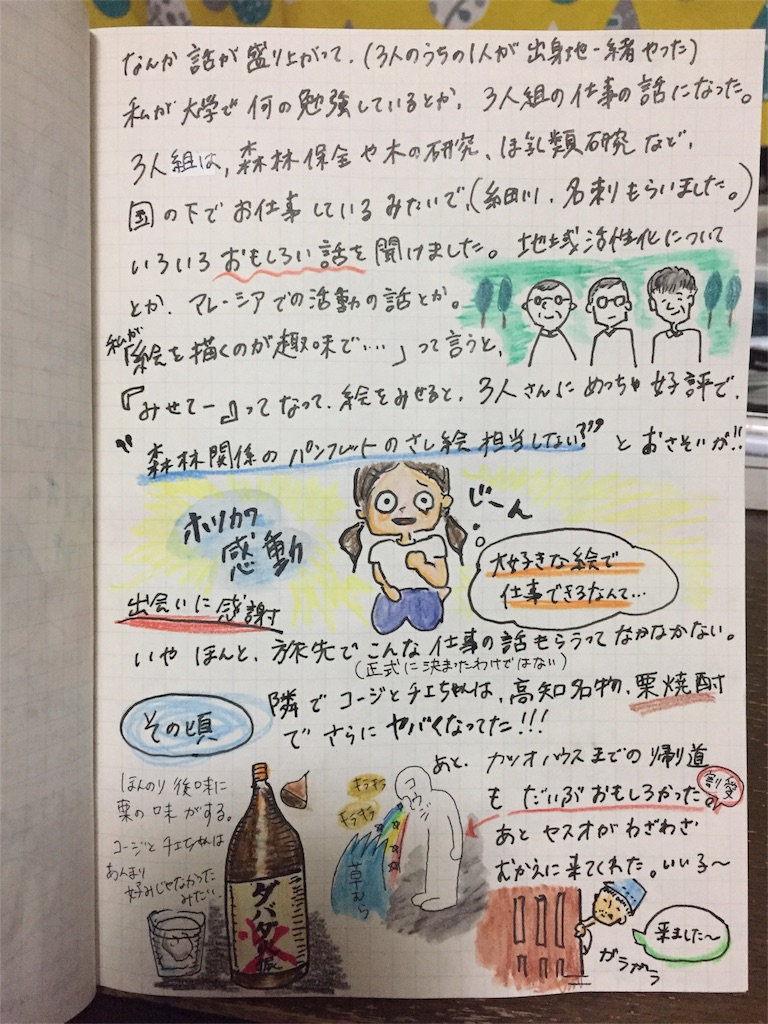 なんか 話が 盛り上がって、(3人のうちの1人が 出身地一緒やった)
私が 大学で 何の勉強しているとか、3人組の仕事の話になった。
3人組は、森林保全や木の研究、ほ乳類研究 など、
国の下で お仕事 している みたいで、(細川、名刺もらいました。)
いろいろ おもしろい話を 聞けました。 地域活性化について
とか、マレーシアでの活動の話とか。
私が
「絵を描くのが趣味で・・・・」って言うと、
『みせてー』ってなって、絵をみせると、3人さんに めっちゃ 好評で、
"森林関係の パンフレットのさし絵 担当しない?" と おさそいが!!
ホソカワ
感動
じーん
大好きな絵で
仕事できるなんて…
出会いに 感謝
いや ほんと、旅先で こんな 仕事の話 もらうって なかなかない。
(正式に決まったわけではない)
その頃
隣で コージと チエちゃんは、高知名物、栗焼酎
で さらに ヤバくなってた!!!
ほんのり 後味に
栗の味 がする。
コージと チエちゃんは
あんまり
好みじゃなかった
みたい。
ダバダ
火振
キラキラ
キラキラ
コウジ
草むら
あと、カツオハウスまでの 帰り道
も だいぶ おもしろかった。
割愛
あと ヤスオが わざわざ
むかえに 来てくれた。いい子〜
来ました〜
ガラガラ